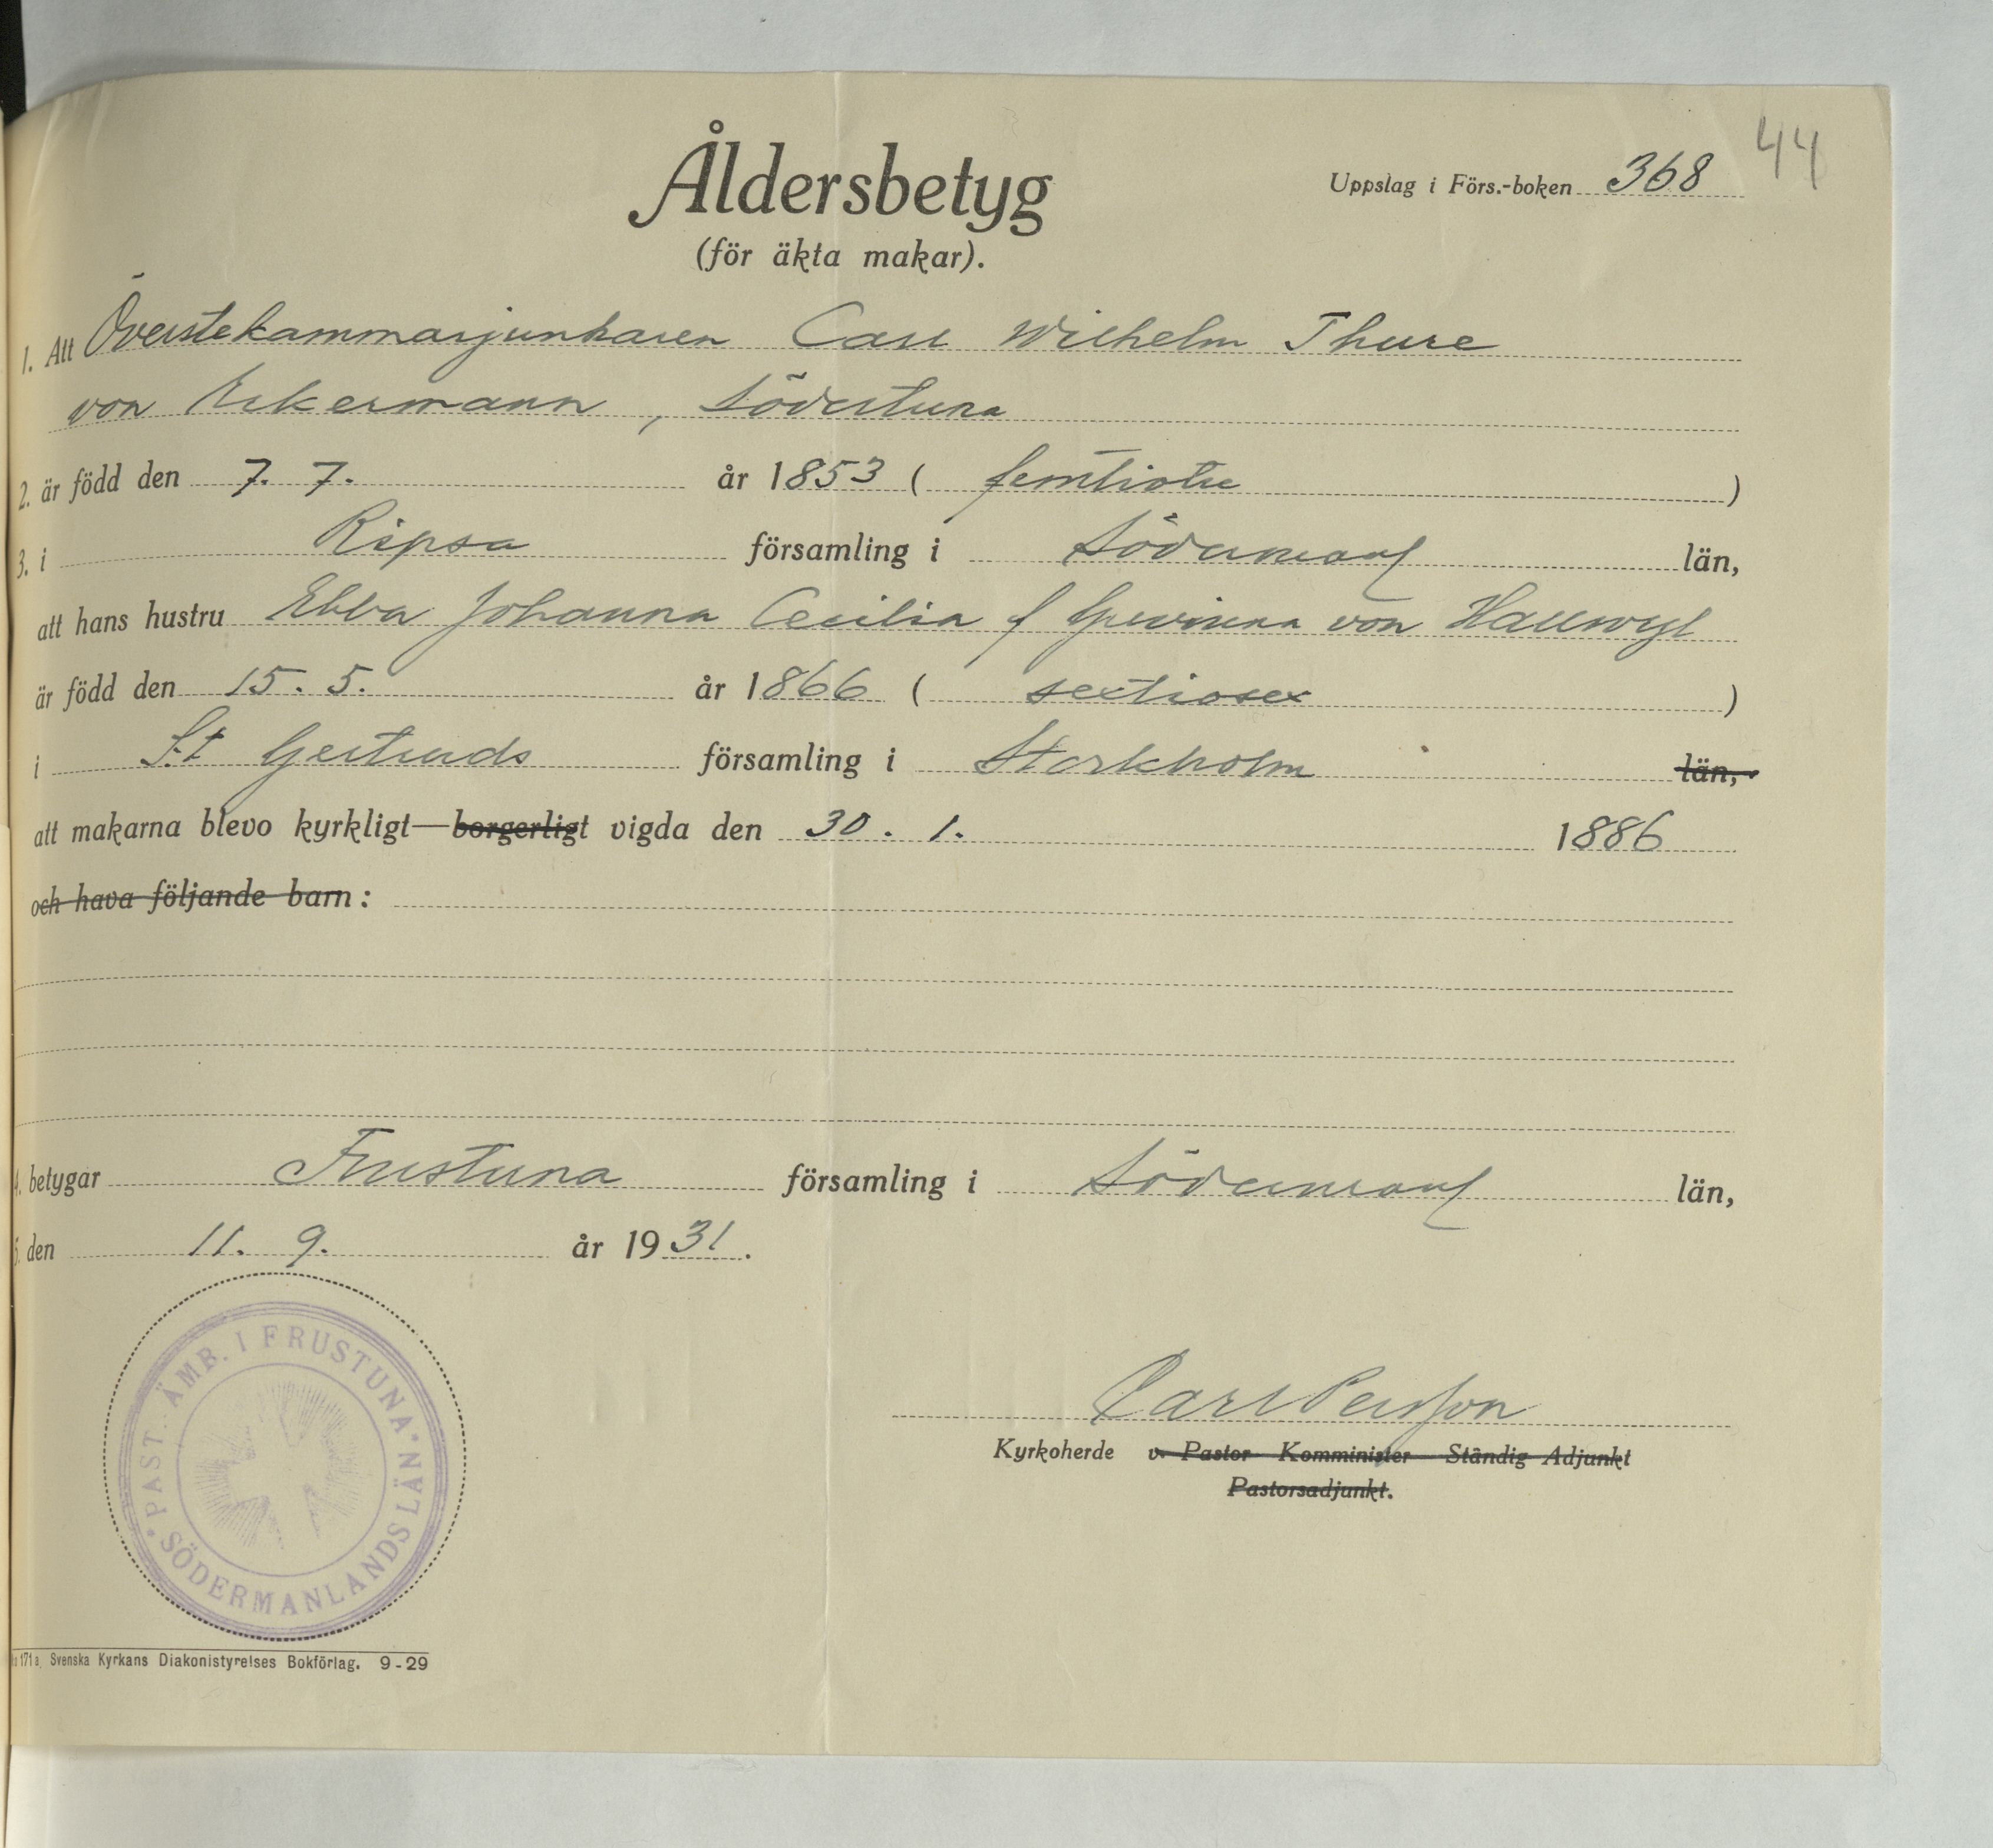 44
Åldersbetyg
Uppslag i Förs.-boken 368
(för äkta makar).
1. Att Överstekammarjunkaren Carl Wilhelm Thure
von Eckermann, Södertuna
2. är född den 7. 7. år 1853 ( femtiotre )
3. i Ripsa församling i Södermanl län,
att hans hustru Ebba Johanna Cecilia f Grevinna von Hallwyl
är född den 15. 5. år 1866 ( sextiosex )
i S:t Gertruds församling i Stockholm län,
att makarna blevo kyrkligt—borgerligt vigda den 30. 1. 1886
och hava följande barn:
4. betygar Frustuna församling i Södermanl län,
5. den 11. 9. år 1931.
PAST. ÄMB. I FRUSTUNA
SÖDERMANLANDS LÄN
Carl Persson
Kyrkoherde v. Pastor Komminister Ständig Adjunkt
Pastorsadjunkt.
171 a, Svenska Kyrkans Diakonistyrelses Bokförlag. 9-29